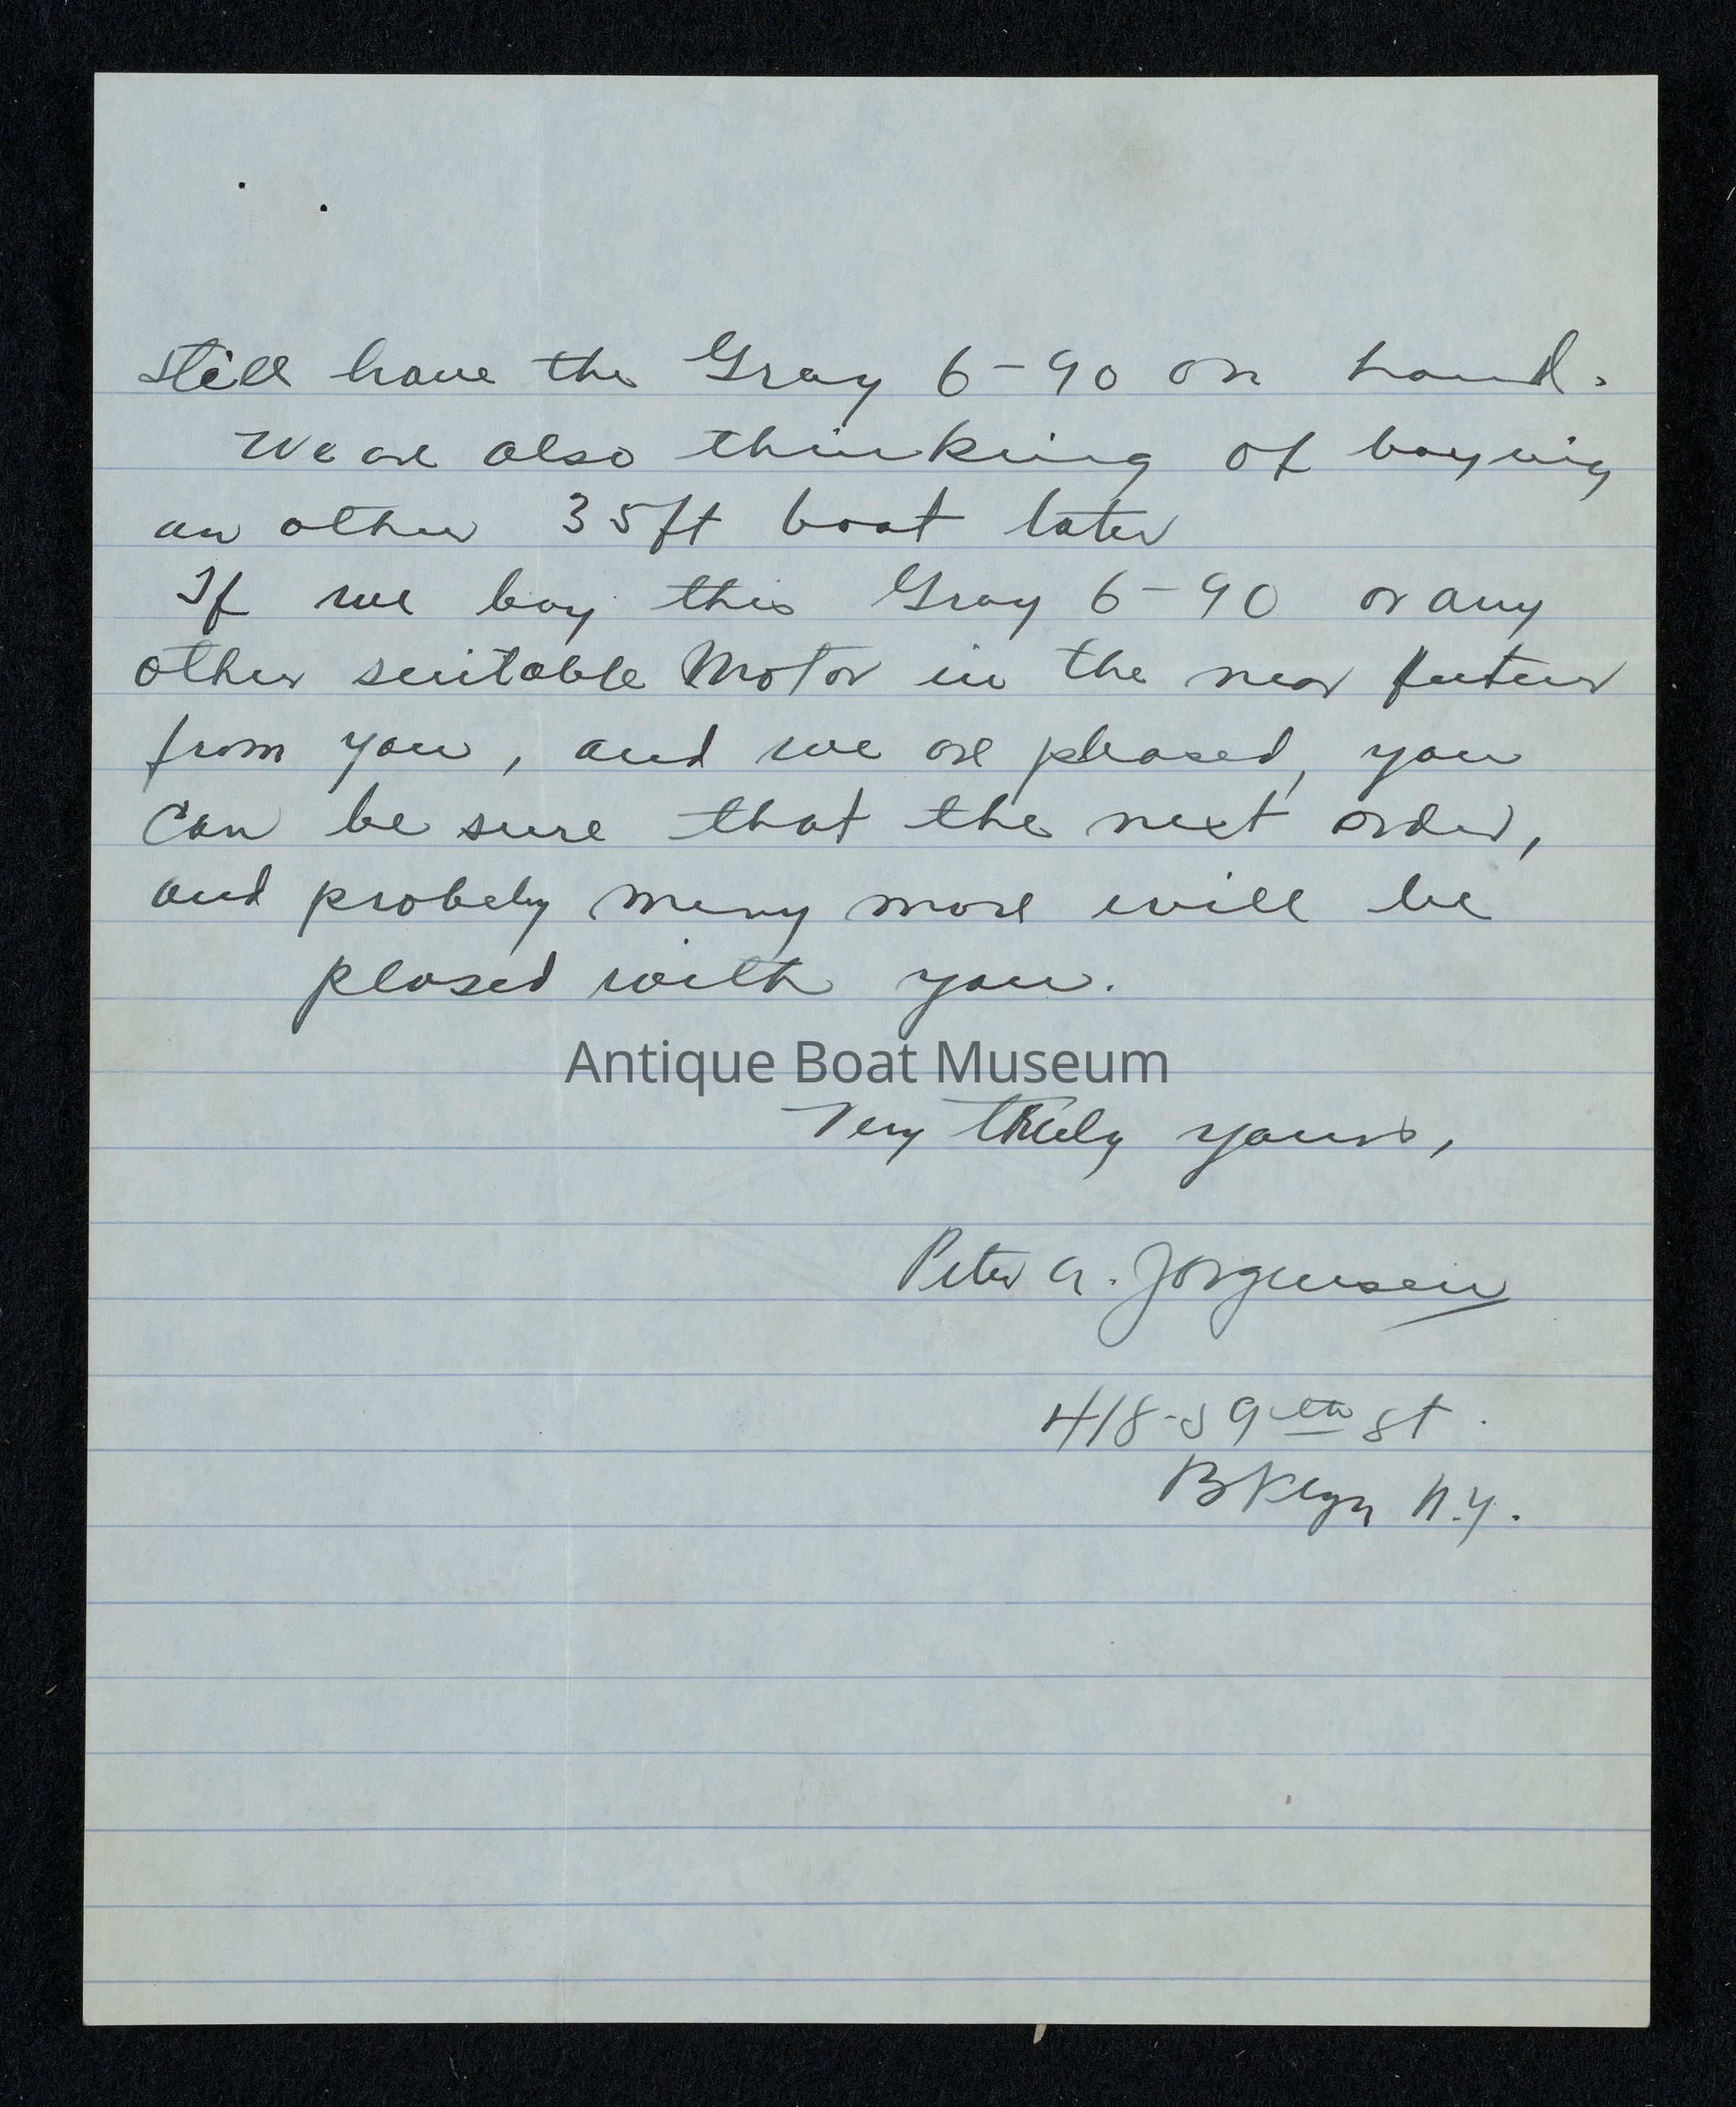 still have the Gray 6-90 on hand.
We are also thinking of buying
an other 35ft boat later
If we buy this Gray 6-90 or any
other suitable Motor in the near future
from you, and we are pleased, you
can be sure that the next order,
and probely meny more will be
plased with you.
Antique Boat Museum
Very truly yours,
Peter A. Jorgensen
418-59th St.
Bklyn N.Y.